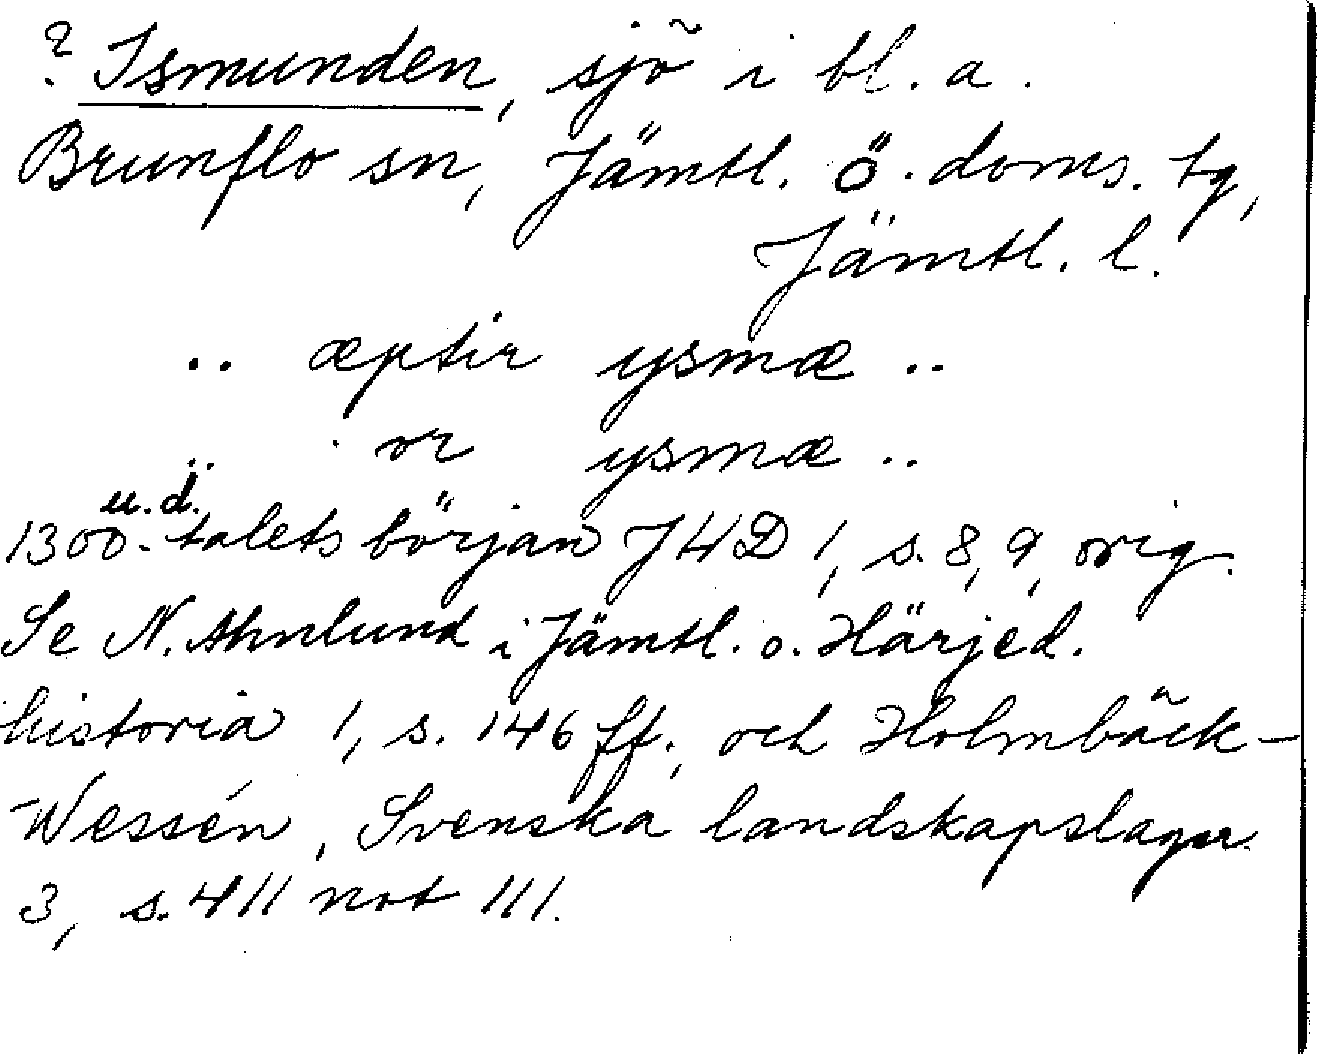 ? Ismunden, sjö i bl. a.
Brunflo sn, Jämtl. ö. doms. tg,
Jämtl. l.
.. æptir ysmæ ..
.. or ysmæ ..
u. d.
1300-talets början JHD 1, s. 8, 9, orig.
Se N. Ahnlund i Jämtl. o. Härjed.
historia 1, s. 146 ff., och Holmbäck-
Wessén, Svenska landskapslagar
3, s. 411 not 111.